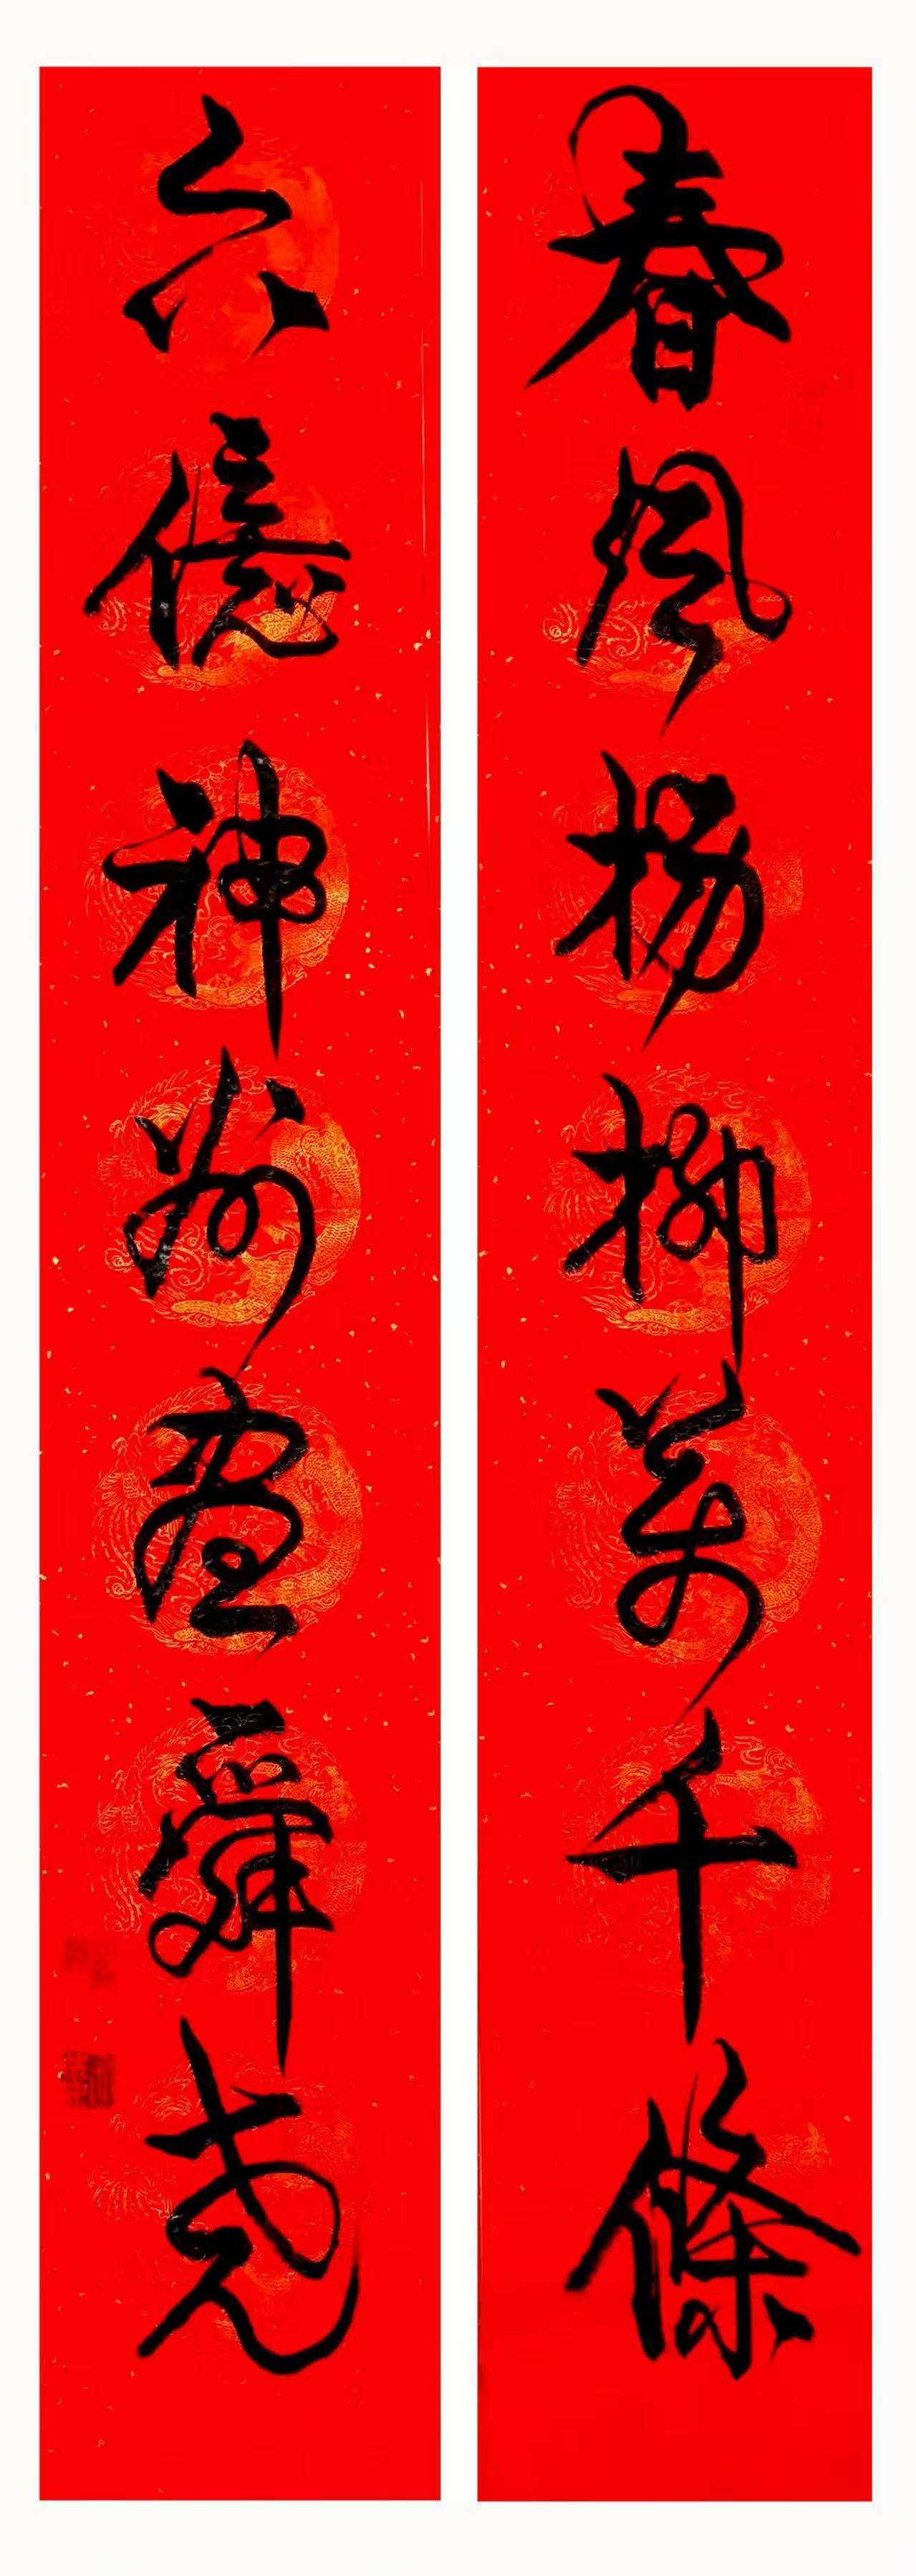 春風楊柳萬千條
六億神州盡舜堯